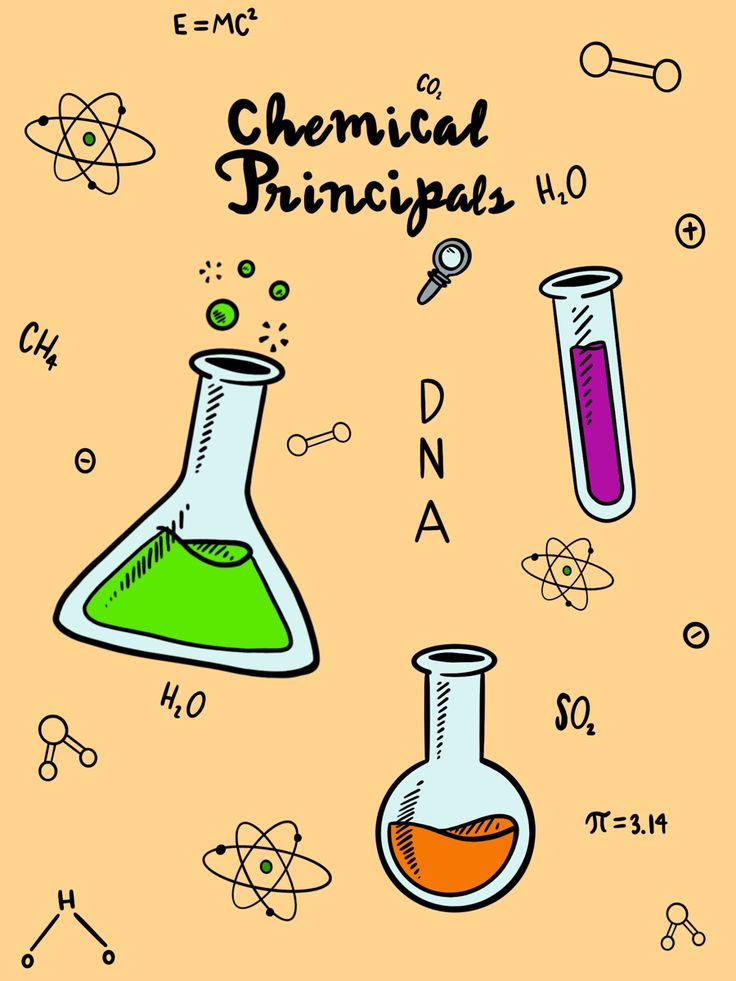 E=MC²
CO₂
Chemical
Principals
H₂O
+
CH₄
D
N
A
-
-
H₂O
SO₂
π=3.14
H
O O